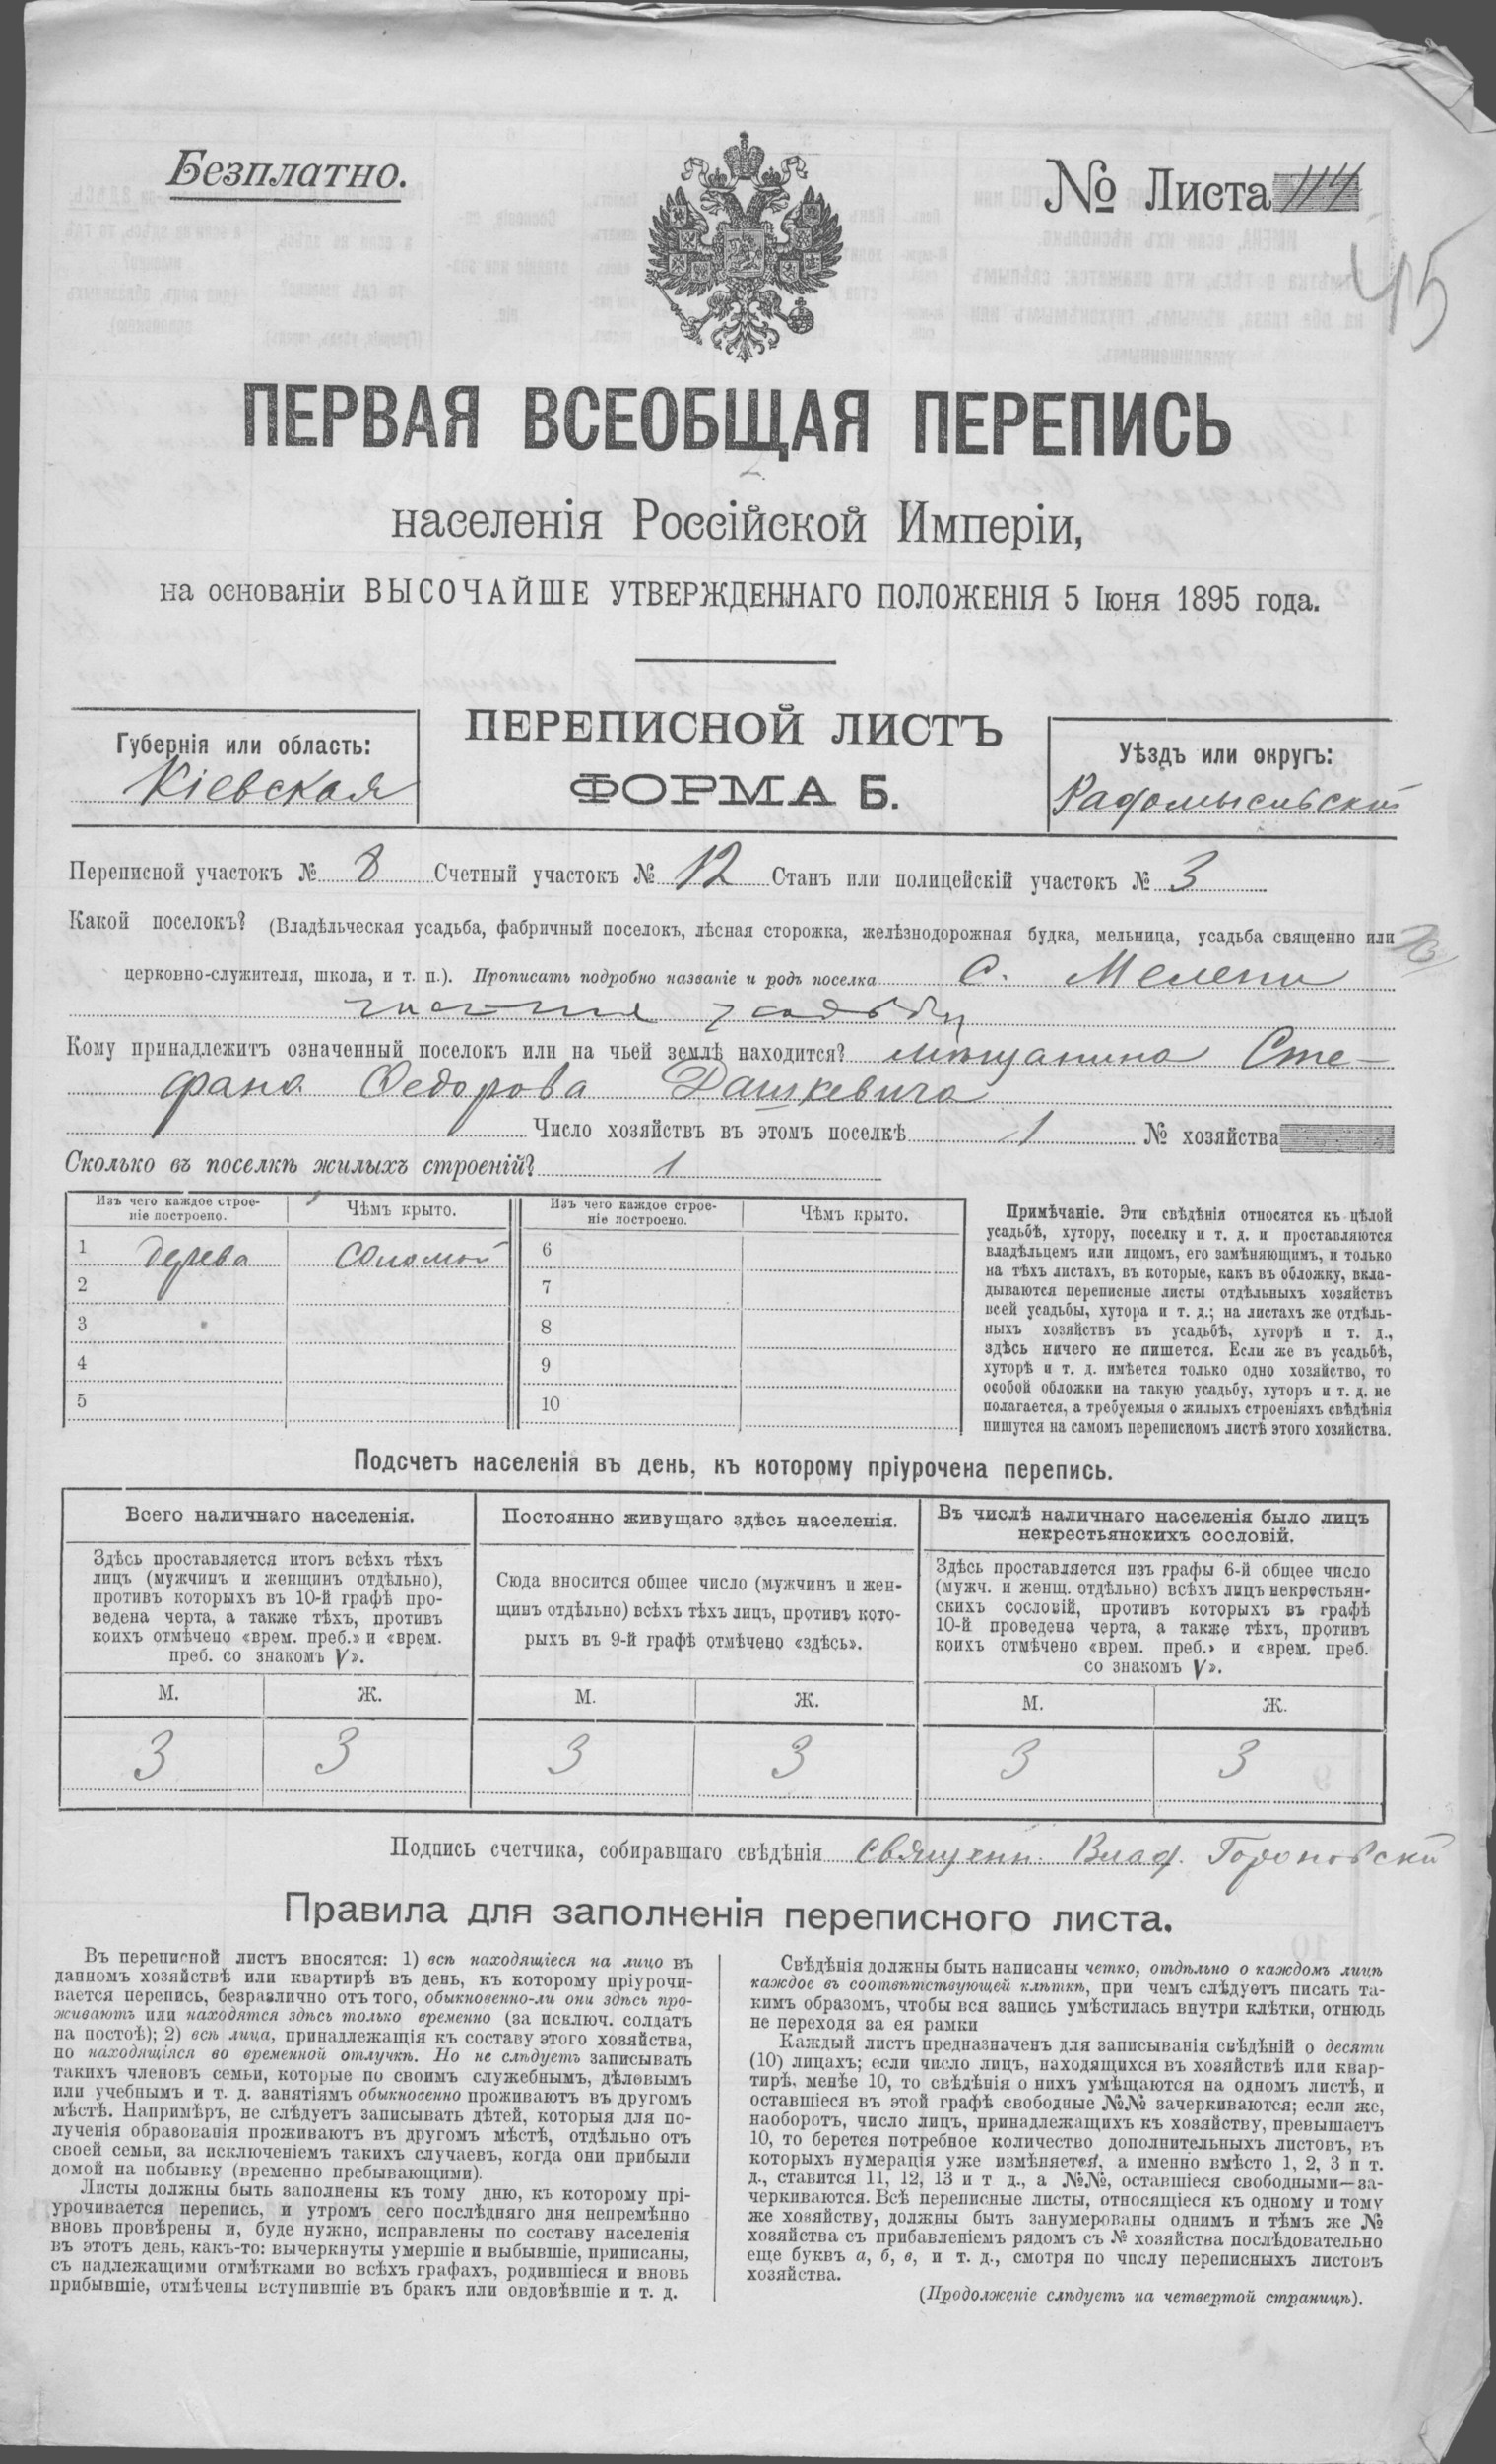 Безплатно.
№ Листа 114
45
ПЕРВАЯ ВСЕОБЩАЯ ПЕРЕПИСЬ
населенія Россійской Имперіи,
на основаніи ВЫСОЧАЙШЕ УТВЕРЖДЕННАГО ПОЛОЖЕНІЯ 5 Іюня 1895 года.
ПЕРЕПИСНОЙ ЛИСТЪ
ФОРМА Б.
Губернія или область:
Кіевская
Уѣздъ или округъ:
Радомысльскій
Переписной участокъ № 8 Счетный участокъ № 12 Станъ или полицейскій участокъ № 3
Какой поселокъ? (Владѣльческая усадьба, фабричный поселокъ, лѣсная сторожка, желѣзнодорожная будка, мельница, усадьба священно или
церковно-служителя, школа, и т. п.). Прописать подробно названіе и родъ поселка с. Мелени
усадьба
Кому принадлежитъ означенный поселокъ или на чьей землѣ находится? мѣщанина Сте-
фана Федорова Дашкевича
Число хозяйствъ въ этомъ поселкѣ 1 № хозяйства
Сколько въ поселкѣ жилыхъ строеній? 1
Изъ чего каждое строе-
ніе построено.
Чѣмъ крыто.
Изъ чего каждое строе-
ніе построено.
Чѣмъ крыто.
1 дерева соломой 6
2 7
3 8
4 9
5 10
Примѣчаніе. Эти свѣдѣнія относятся къ цѣлой
усадьбѣ, хутору, поселку и т. д. и проставляются
владѣльцемъ или лицомъ, его замѣняющимъ, и только
на тѣхъ листахъ, въ которые, какъ въ обложку, вкла-
дываются переписные листы отдѣльныхъ хозяйствъ
всей усадьбы, хутора и т. д.; на листахъ же отдѣль-
ныхъ хозяйствъ въ усадьбѣ, хуторѣ и т. д.,
здѣсь ничего не пишется. Если же въ усадьбѣ,
хуторѣ и т. д. имѣется только одно хозяйство, то
особой обложки на такую усадьбу, хуторъ и т. д. не
полагается, а требуемыя о жилыхъ строеніяхъ свѣдѣнія
пишутся на самомъ переписномъ листѣ этого хозяйства.
Подсчетъ населенія въ день, къ которому пріурочена перепись.
Всего наличнаго населенія.
Здѣсь проставляется итогъ всѣхъ тѣхъ
лицъ (мужчинъ и женщинъ отдѣльно),
противъ которыхъ въ 10-й графѣ про-
ведена черта, а также тѣхъ, противъ
коихъ отмѣчено «врем. преб.» и «врем.
преб. со знакомъ V».
Постоянно живущаго здѣсь населенія.
Сюда вносится общее число (мужчинъ и жен-
щинъ отдѣльно) всѣхъ тѣхъ лицъ, противъ кото-
рыхъ въ 9-й графѣ отмѣчено «здѣсь».
Въ числѣ наличнаго населенія было лицъ
некрестьянскихъ сословій.
Здѣсь проставляется изъ графы 6-й общее число
(мужч. и женщ. отдѣльно) всѣхъ лицъ некрестьян-
скихъ сословій, противъ которыхъ въ графѣ
10-й проведена черта, а также тѣхъ, противъ
коихъ отмѣчено «врем. преб.» и «врем. преб.
со знакомъ V».
М. Ж. М. Ж. М. Ж.
3 3 3 3 3 3
Подпись счетчика, собиравшаго свѣдѣнія священ. Влад.
Правила для заполненія переписного листа.
Въ переписной листъ вносятся: 1) всѣ находящіеся на лицо въ
данномъ хозяйствѣ или квартирѣ въ день, къ которому пріурочи-
вается перепись, безразлично отъ того, обыкновенно-ли они здѣсь про-
живаютъ или находятся здѣсь только временно (за исключ. солдатъ
на постоѣ); 2) всѣ лица, принадлежащія къ составу этого хозяйства,
но находящіяся во временной отлучкѣ. Но не слѣдуетъ записывать
такихъ членовъ семьи, которые по своимъ служебнымъ, дѣловымъ
или учебнымъ и т. д. занятіямъ обыкносенно проживаютъ въ другомъ
мѣстѣ. Напримѣръ, не слѣдуетъ записывать дѣтей, которыя для по-
лученія образованія проживаютъ въ другомъ мѣстѣ, отдѣльно отъ
своей семьи, за исключеніемъ такихъ случаевъ, когда они прибыли
домой на побывку (временно пребывающими).
Листы должны быть заполнены къ тому дню, къ которому прі-
урочивается перепись, и утромъ сего послѣдняго дня непремѣнно
вновь провѣрены и, буде нужно, исправлены по составу населенія
въ этотъ день, какъ-то: вычеркнуты умершіе и выбывшіе, приписаны,
съ надлежащими отмѣтками во всѣхъ графахъ, родившіеся и вновь
прибывшіе, отмѣчены вступившіе въ бракъ или овдовѣвшіе и т. д.
Свѣдѣнія должны быть написаны четко, отдѣльно о каждомъ лицѣ
каждое въ соотвѣтствующей клѣткѣ, при чемъ слѣдуетъ писать та-
кимъ образомъ, чтобы вся запись умѣстилась внутри клѣтки, отнюдь
не переходя за ея рамки
Каждый листъ предназначенъ для записыванія свѣдѣній о десяти
(10) лицахъ; если число лицъ, находящихся въ хозяйствѣ или квар-
тирѣ, менѣе 10, то свѣдѣнія о нихъ умѣщаются на одномъ листѣ, и
оставшіеся въ этой графѣ свободные №№ зачеркиваются; если же,
наоборотъ, число лицъ, принадлежащихъ къ хозяйству, превышаетъ
10, то берется потребное количество дополнительныхъ листовъ, въ
которыхъ нумерація уже измѣняется, а именно вмѣсто 1, 2, 3 и т.
д., ставится 11, 12, 13 и т д., а №№, оставшіеся свободными—за-
черкиваются. Всѣ переписные листы, относящіеся къ одному и тому
же хозяйству, должны быть занумерованы однимъ и тѣмъ же №
хозяйства съ прибавленіемъ рядомъ съ № хозяйства послѣдовательно
еще буквъ а, б, в, и т. д., смотря по числу переписныхъ листовъ
хозяйства.
(Продолженіе слѣдуетъ на четвертой страницѣ).